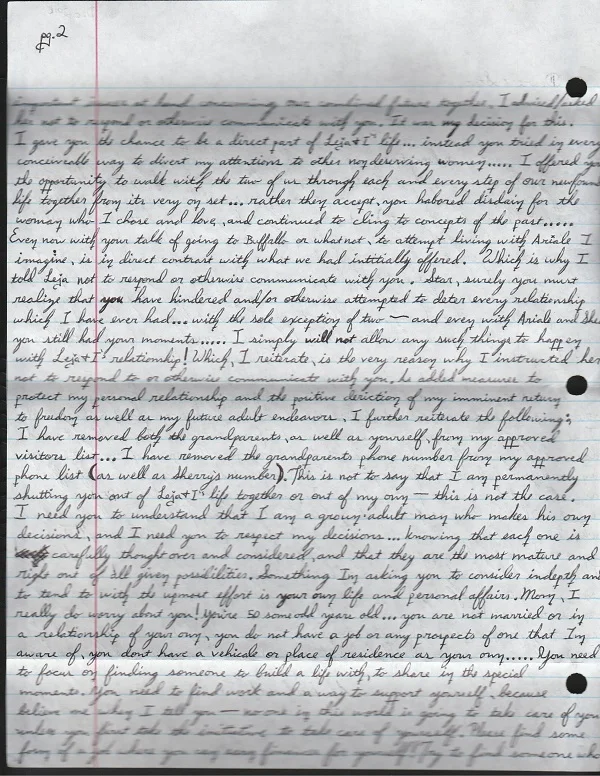 pg. 2
important issues at hand concerning our combined future together, I advised/asked
her not to respond or otherwise communicate with you. It was my decision for this.
I gave you the chance to be a direct part of Leja+I's life... instead you tried in every
conceiveable way to divert my attentions to other nondeserving women..... I offered you
the opportunity to walk with the two of us through each and every step of our newfound
life together from its very on set... rather then accept, you habored disdain for the
woman who I chose and love, and continued to cling to concepts of the past.....
Even now with your talk of going to Buffallo or what not, to attempt living with Ariale I
imagine, is in direct contrast with what we had intitially offered. Which is why I
told Leja not to respond or otherwise communicate with you. Star, surely you must
realize that you have hindered and/or otherwise attempted to deter every relationship
which I have ever had... with the sole exception of two — and even with Ariale and She
you still had your moments..... I simply will not allow any such things to happen
with Leja+I's relationship! Which, I reiterate, is the very reason why I instructed her
not to respond to or otherwise communicate with you. As added measures to
protect my personal relationship and the positive diriction of my imminent return
to freedom as well as my future adult endeavors, I further reiterate the following;
I have removed both the grandparents, as well as yourself, from my approved
visitors list... I have removed the grandparents phone number from my approved
phone list (as well as Sherry's number). This is not to say that I am permanently
shutting you out of Leja+I's life together or out of my own — this is not the case.
I need you to understand that I am a grown adult man who makes his own
decisions, and I need you to respect my decisions... knowing that each one is
carefully thought over and considered, and that they are the most mature and
right out of all given possilities. Something Im asking you to consider indepth and
to tend to with the upmost effort is your own life and personal affairs. Mom, I
really do worry about you! You're 50 some odd years old... you are not married or in
a relationship of your own, you do not have a job or any prospects of one that Im
aware of, you dont have a vehicale or place of residence as your own..... You need
to focus on finding someone to build a life with, to share in the special
moments. You need to find work and a way to support yourself, because
believe me when I tell you — no one in this world is going to take care of you
unless you first take the initiative to take care of yourself. Please find some
form of a job where you may earn finances for yourself. Try to find someone who